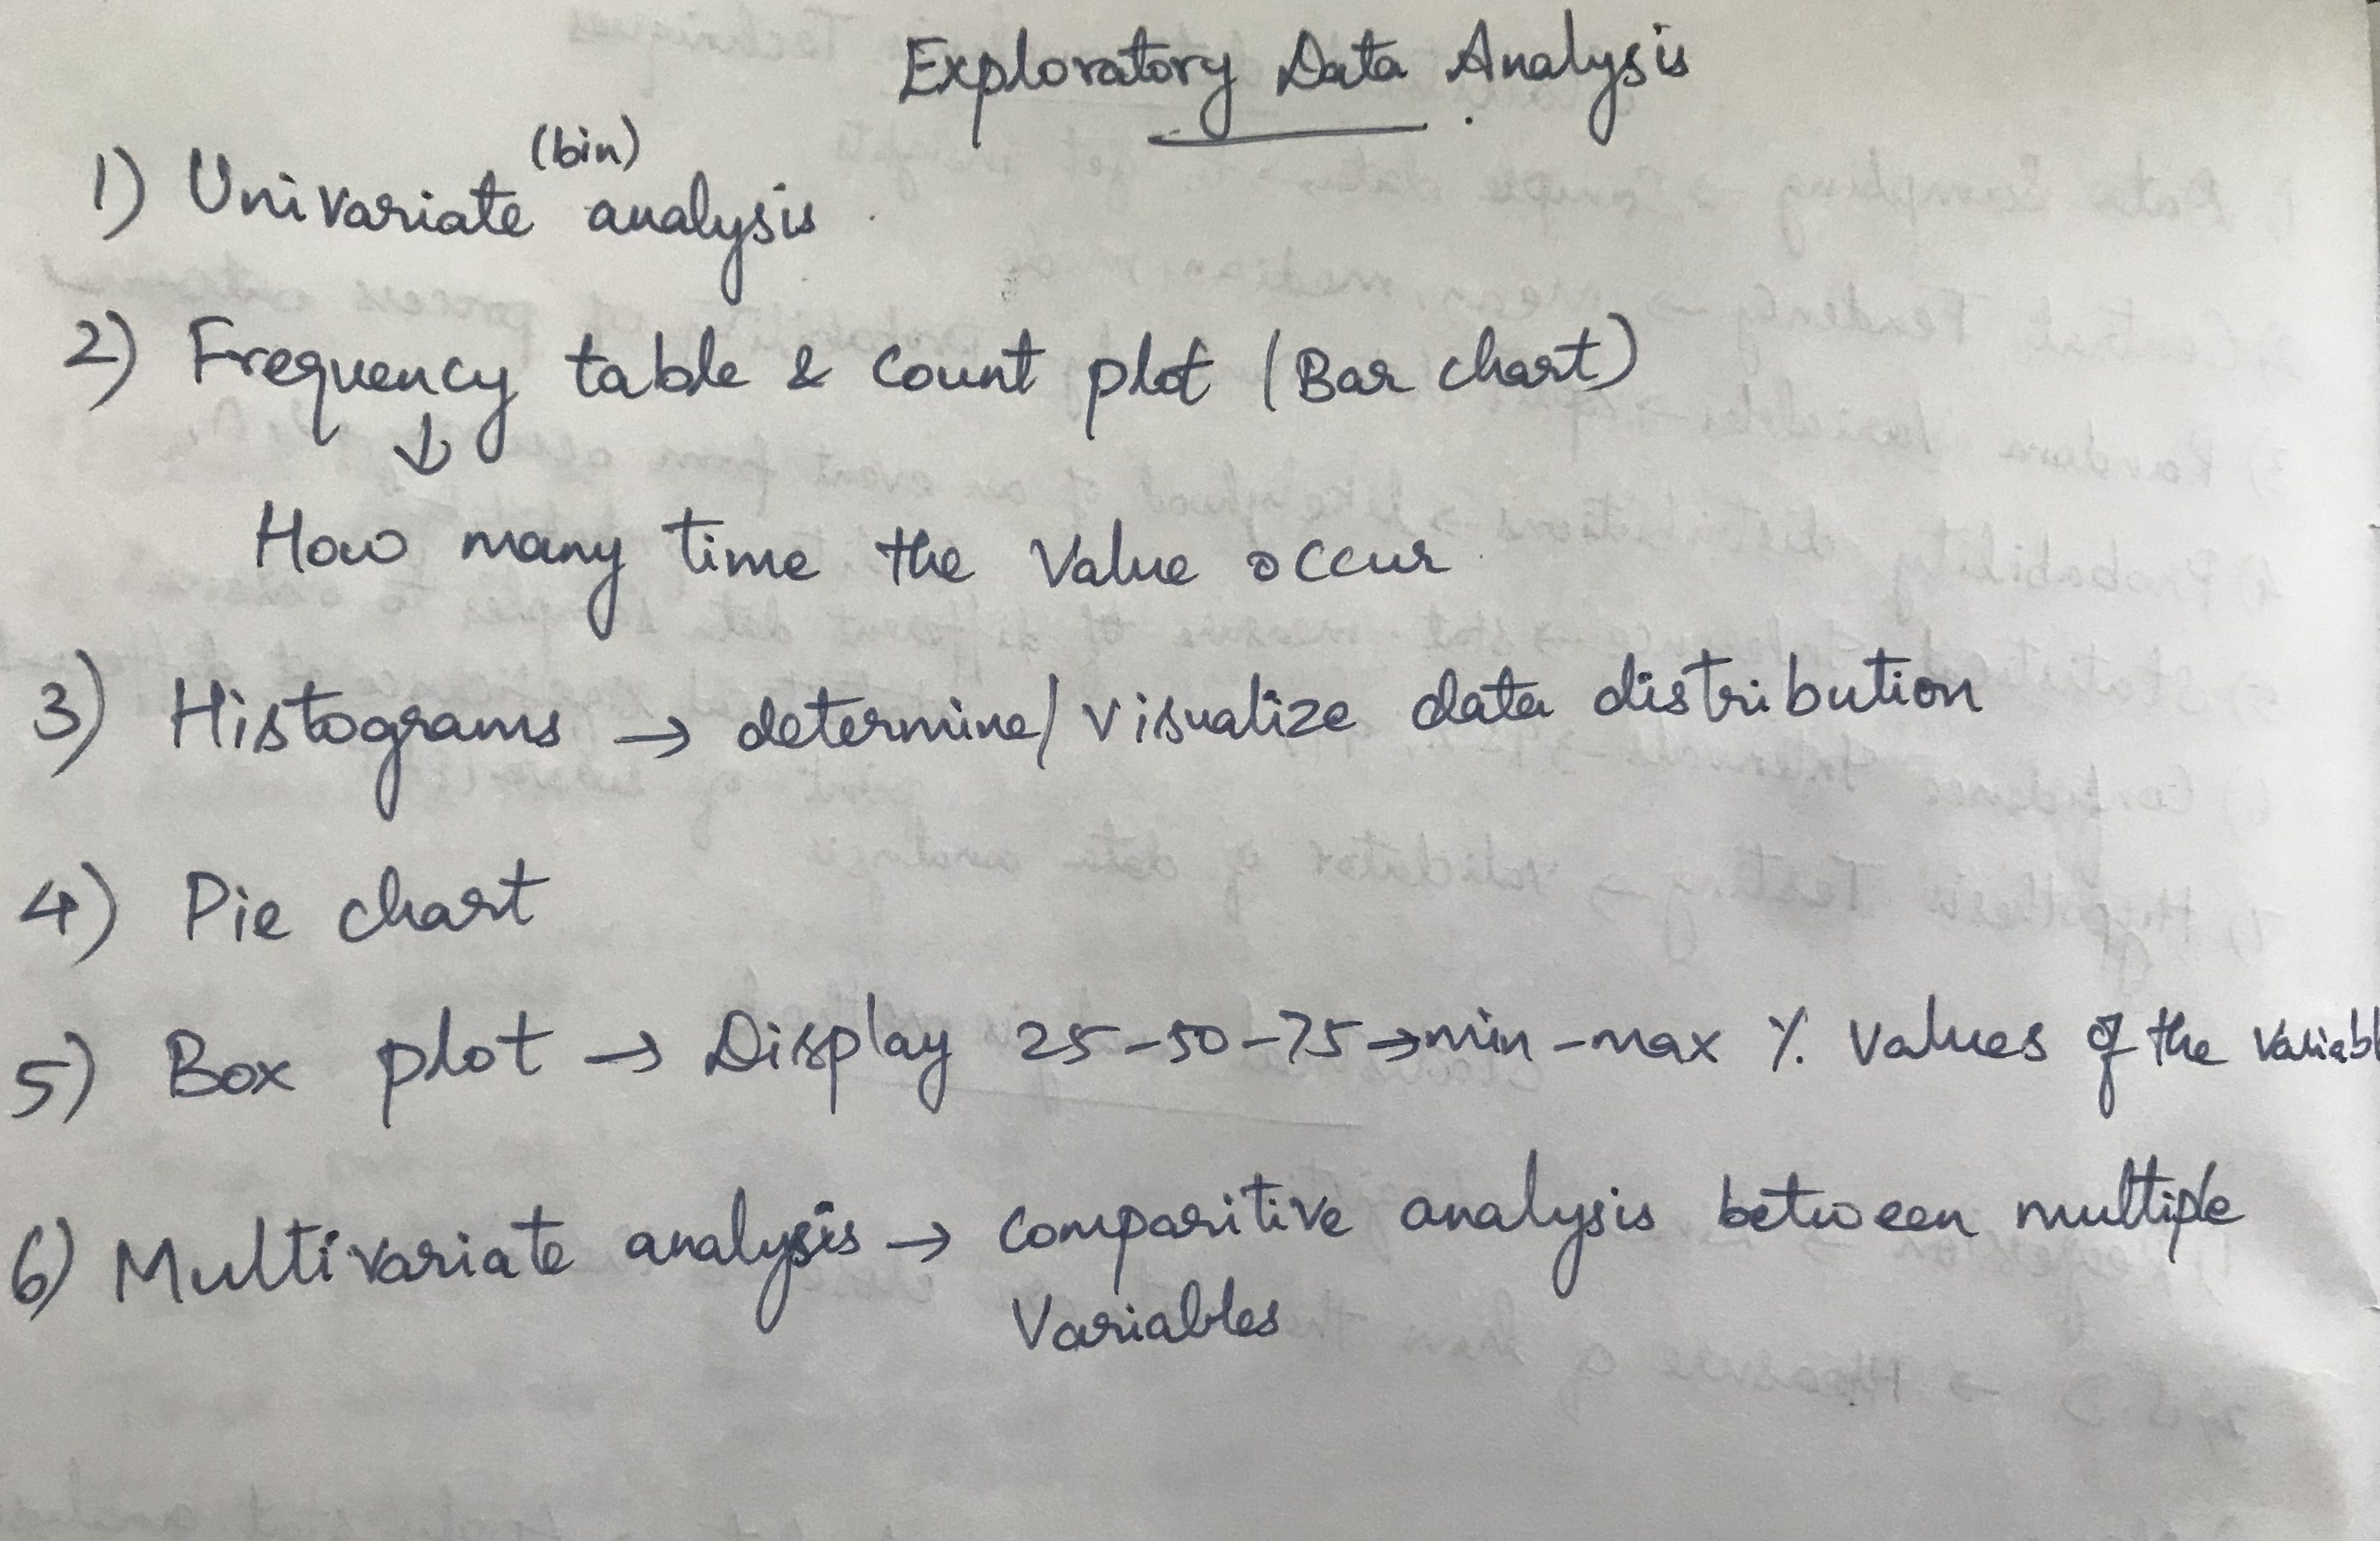 Exploratory Data Analysis
(bin)
1) Univariate analysis
2) Frequency table & Count plot (Bar chart)
↓
How many time the Value occur
3) Histograms → determine/visualize data distribution
4) Pie chart
5) Box plot → Display 25-50-75→min-max % values of the Variabl
6) Multivariate analysis → Comparitive analysis between multiple
Variables